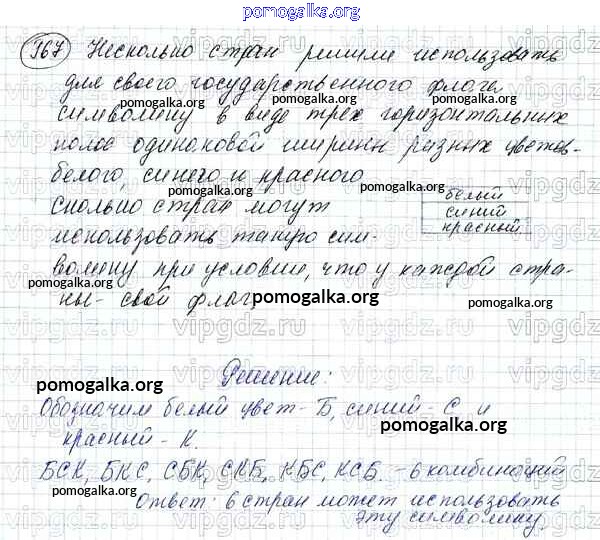 pomogalka.org
967 Несколько стран решили использовать
для своего государственного флага
символику в виде трех горизонтальных
полос одинаковой ширины разных цветов-
белого, синего и красного
Сколько стран могут
использовать такую сим-
волику при условии, что у каждой стра-
ны- свой флаг.
белый
синий
красный
Решение:
Обозначим белый цвет - Б, синий - С и
красный - К.
БСК, БКС, СБК, СКБ, КБС, КСБ. - 6 комбинаций
Ответ: 6 стран может использовать
эту символику.
pomogalka.org
pomogalka.org
pomogalka.org
pomogalka.org
pomogalka.org
pomogalka.org
pomogalka.org
pomogalka.org
pomogalka.org
pomogalka.org
pomogalka.org
pomogalka.org
vipgdz.ru
vipgdz.ru
vipgdz.ru